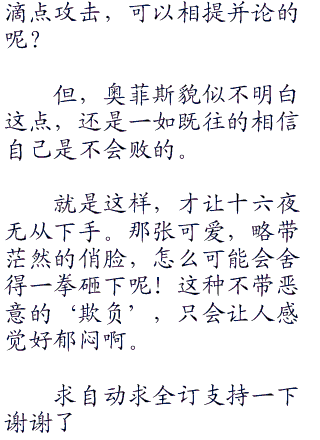 滴点攻击，可以相提并论的
呢？
但，奥菲斯貌似不明白
这点，还是一如既往的相信
自己是不会败的。
就是这样，才让十六夜
无从下手。那张可爱，略带
茫然的俏脸，怎么可能会舍
得一拳砸下呢！这种不带恶
意的‘欺负’，只会让人感
觉好郁闷啊。
求自动求全订支持一下
谢谢了